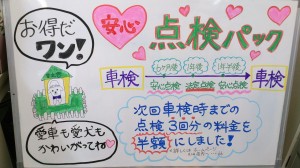 お得だ
ワン!
安心
点検パック
車検
6か月後
1年後
1年半後
車検
安心点検
法定点検
安心点検
次回車検時までの
点検3回分の料金を
半額にしました!
愛車も愛犬も
かわいがってね